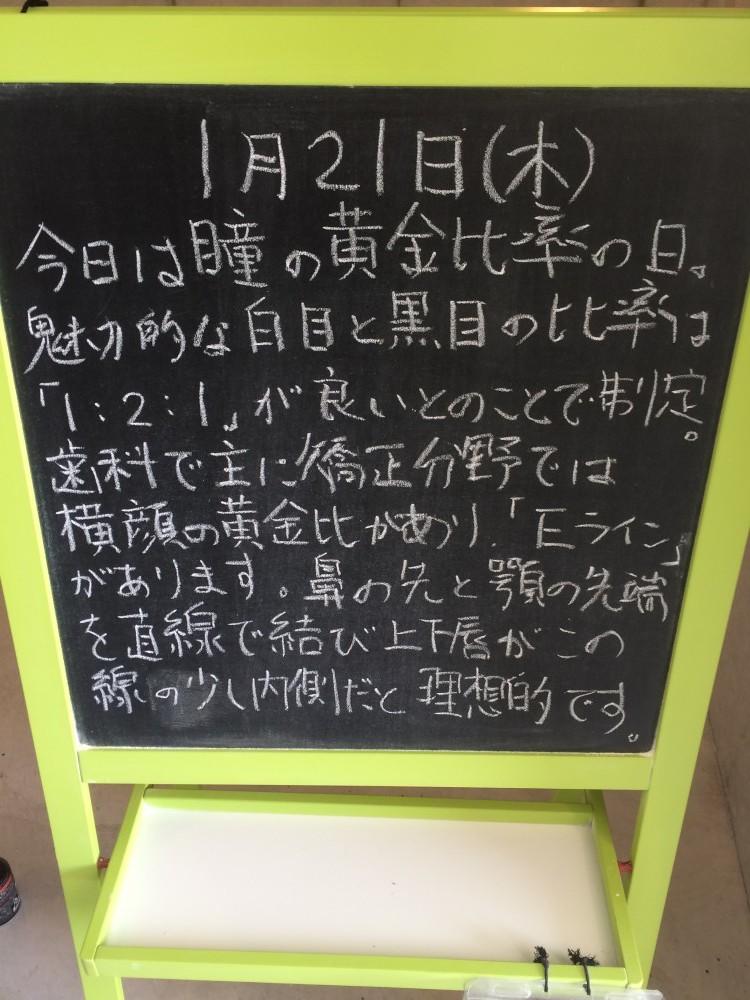 1月21日(木)
今日は瞳の黄金比率の日。
魅力的な白目と黒目の比率は
「1:2:1」が良いとのことで制定。
歯科で主に矯正分野では
横顔の黄金比があり、「Eライン」
があります。鼻の先と顎の先端
を直線で結び上下唇がこの
線の少し内側だと理想的です。